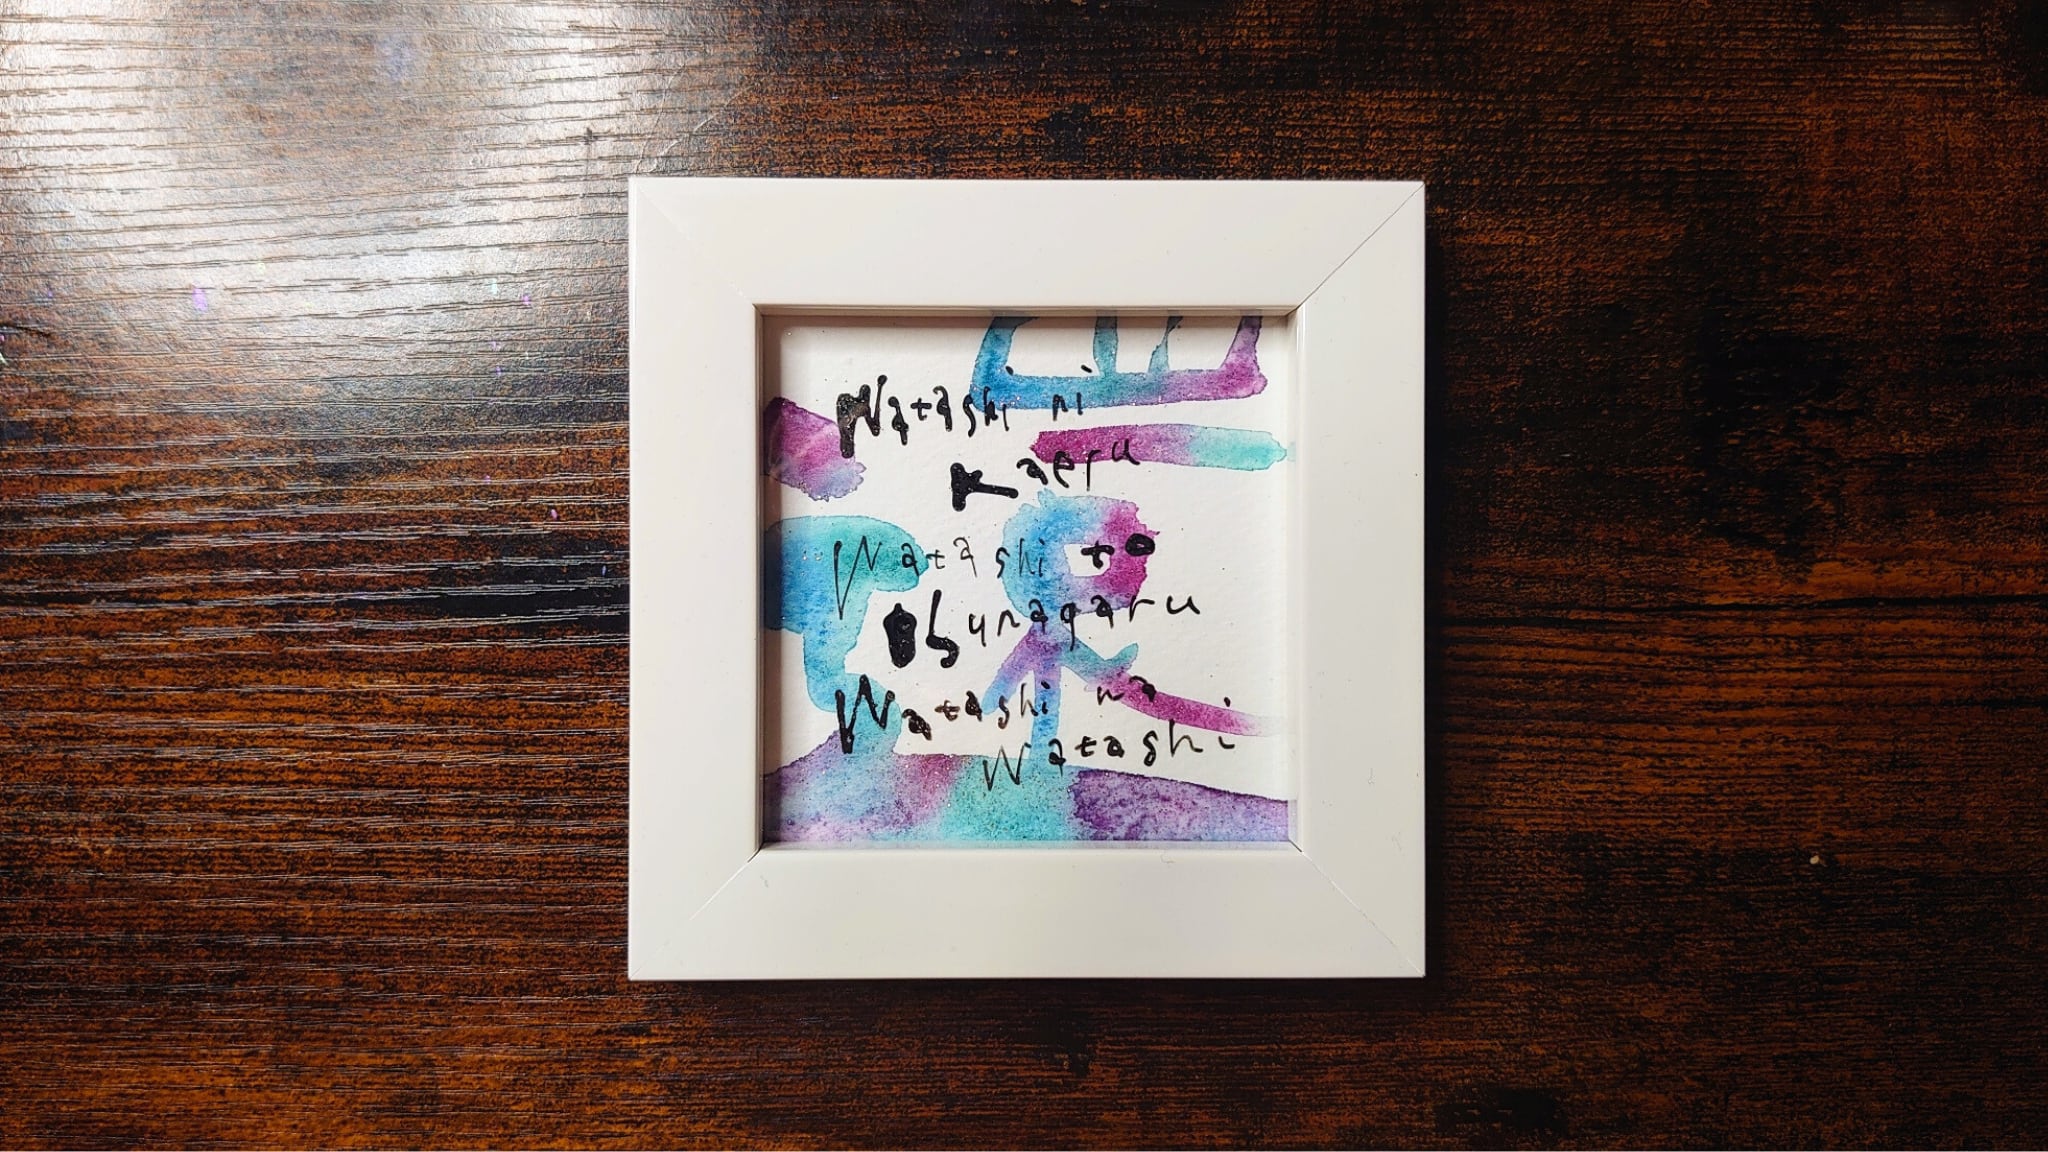 Watashi ni
Kaeru
Watashi to
Tsunagaru
Watashi wa
Watashi